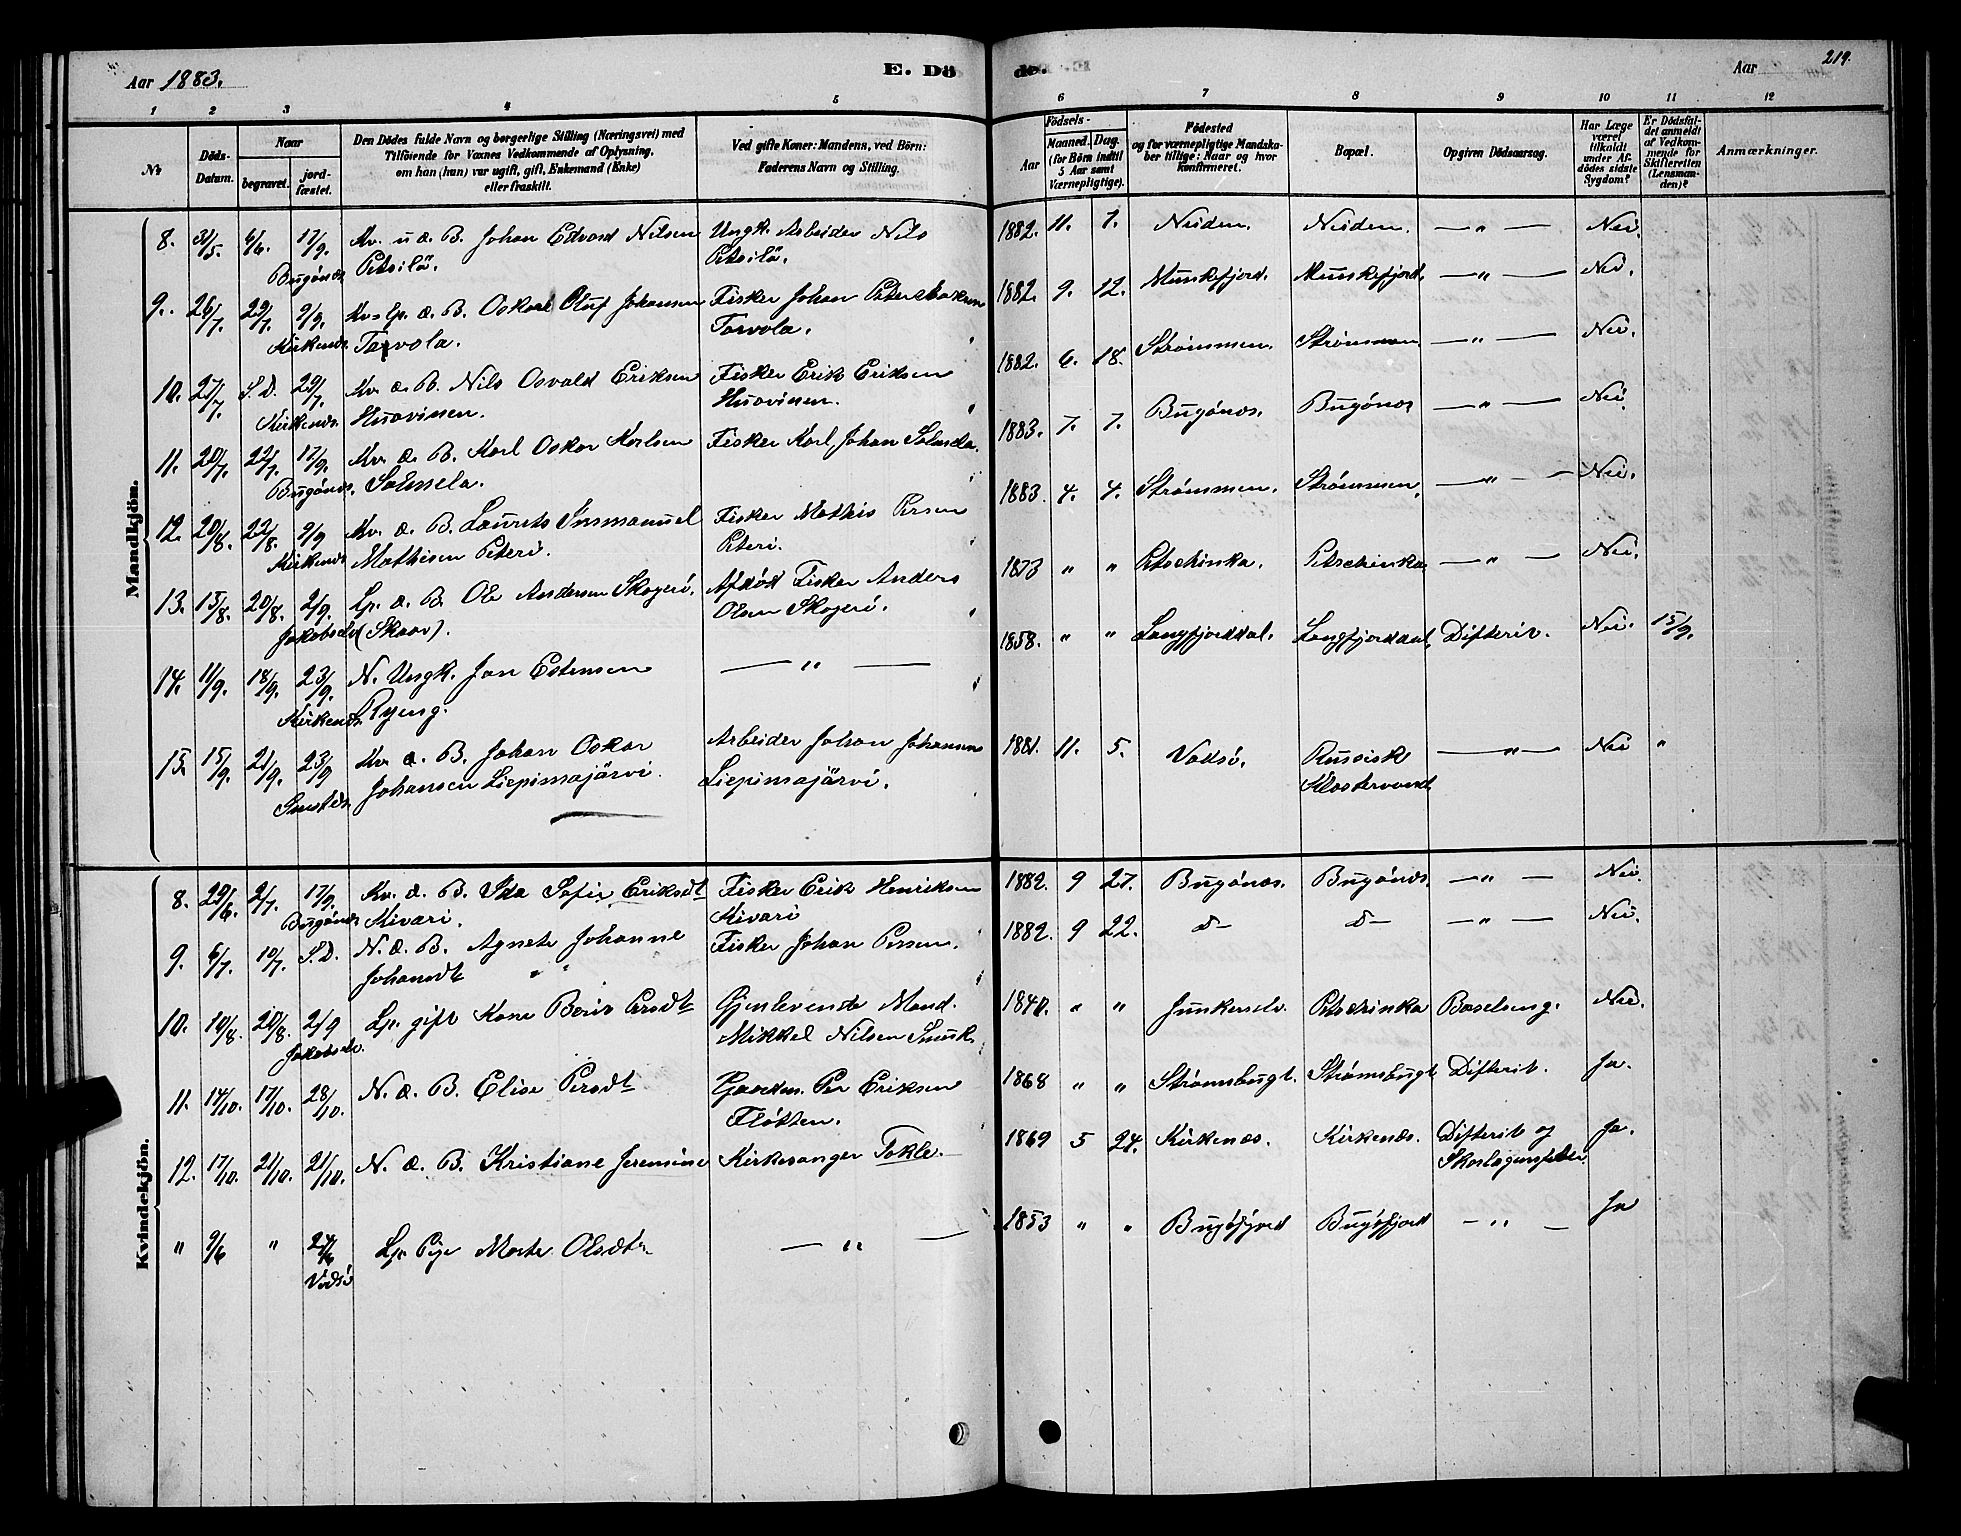 Aar 1883.
E. Dö
de.
Aar
219.
1 2 3 4 5 6 7 8 9 10 11 12
No
Döds-Datum.
Naar
begravet.
jord-fæstet.
Den Dödes fulde Navn og borgerlige Stilling (Næringsvei) med
Tilföiende for Voxnes Vedkommende af Oplysning,
om han (hun) var ugift, gift, Enkemand (Enke)
eller fraskilt.
Ved gifte Koner: Mandens, ved Börn:
Faderens Navn og Stilling.
Födsels-
Aar
Maaned.
Dag.
(for Börn indtil
5 Aar samt
Værnepligtige).
Födested
og for værnepligtige Mandska-
ber tillige: Naar og hvor
konfirmeret.
Bopæl.
Opgiven Dödsaarsag.
Har Læge
været
tilkaldt
under Af-
dödes sidste
Sygdom?
Er Dödsfal-
det anmeldt
af Vedkom-
mende for
Skifteretten
(Lensman-
den)?
Anmærkninger.
Mandkjön.
8. 31/5. 6/6. 17/9. Kv. u æ. B. Johan Edvard Nilsen Ungk. Arbeider Nils 1882. 11. 7. Neiden. Neiden. — " — Nei.
Bugönæs Petsilö. Petsilö.
9. 26/7. 29/7. 9/9. Kv-Lp. æ. B. Oskar Oluf Johansen Fisker Johan Peter 1882. 9. 12. Munkefjord. Munkefjord. — " — Nei.
Kirkenæs. Torvola. Torvola.
10. 27/7. S.D. 29/7. Kv. æ. B. Nils Osvald Eriksen Fisker Erik Eriksen 1882. 6. 18. Strömmen. Strömmen — " — Nei.
Kirkenæs. Huovinen. Huovinen.
11. 20/7. 22/7. 17/9. Kv. æ. B. Karl Oskar Karlsen Fisker Karl Johan Salmela. 1883. 7. 7. Bugönæs. Bugönæs — " — Nei.
Bugönæs. Salmela.
12. 20/8. 22/8. 9/9 Kv. æ. B. Laurits Immanuel Fisker Mathis Persen 1883. 4. 4. Strömmen. Strömmen. — " — Nei.
Kirkenæs Mathisen Peteri. Peteri.
13. 15/8. 20/8. 2/9. Lp. æ. B. Ole Andersen Skogerö. Afdöd Fisker Anders 1873 " " Petschinka. Petschinka — " — Nei.
Jakobselv (Skaar). Olsen Skogerö.
14. 11/9. 18/9. 23/9. N. Ungk. Jon Estensen — " — 1858. " " Langfjorddal. Langfjorddal. Difterit. Nei. 15/9.
Kirkenæs Ryeng.
15. 15/9. 21/9. 23/9 Kv. æ. B. Johan Oskar Arbeider Johan Johansen 1881. 11. 5. Vadsö. Russisk — " — Nei "
Johansen Liepimajärvi. Liepimajärvi. Klostervandt
Kvindekjön.
8. 29/6. 2/7. 17/9. Kv. æ. B. Ida Sofie Eriksdt Fisker Erik Henriksen 1882. 9 27. Bugönæs. Bugönæs. — " — Nei.
Bugönæs Kivari. Kivari
9. 6/7. 10/7. S.D. N. æ. B. Agnete Johanne Fisker Johan Persen. 1882. 9 22. d— d— — " — Nei.
Johansdt " "
10. 10/8. 20/8. 2/9 Lp. gift Kone Berit Persdt Gjenlevende Mand. 1840. " " Junkerselv. Petschinka Barselseng. Nei.
Jakobselv. Mikkel Nilsen
11. 14/10. 17/10. 28/10. N. æ. B. Elise Persdt Gaardm. Per Eriksen 1868 " " Strömsbugt. Strömsbugt Difterit. Ja.
Flötten.
12. 17/10. 21/10. 21/10. N. æ. B. Kristiane Jeremine Kirkesanger Tokle. 1869 5 24. Kirkenæs. Kirkenæs. Difterit og Ja.
Skarlagensfeber
" 9/6 " 24/6 Lp. Pige Marte Olsdtr — " — 1853 " " Bugöfjord Bugöfjord — " — Ja
Vadsö